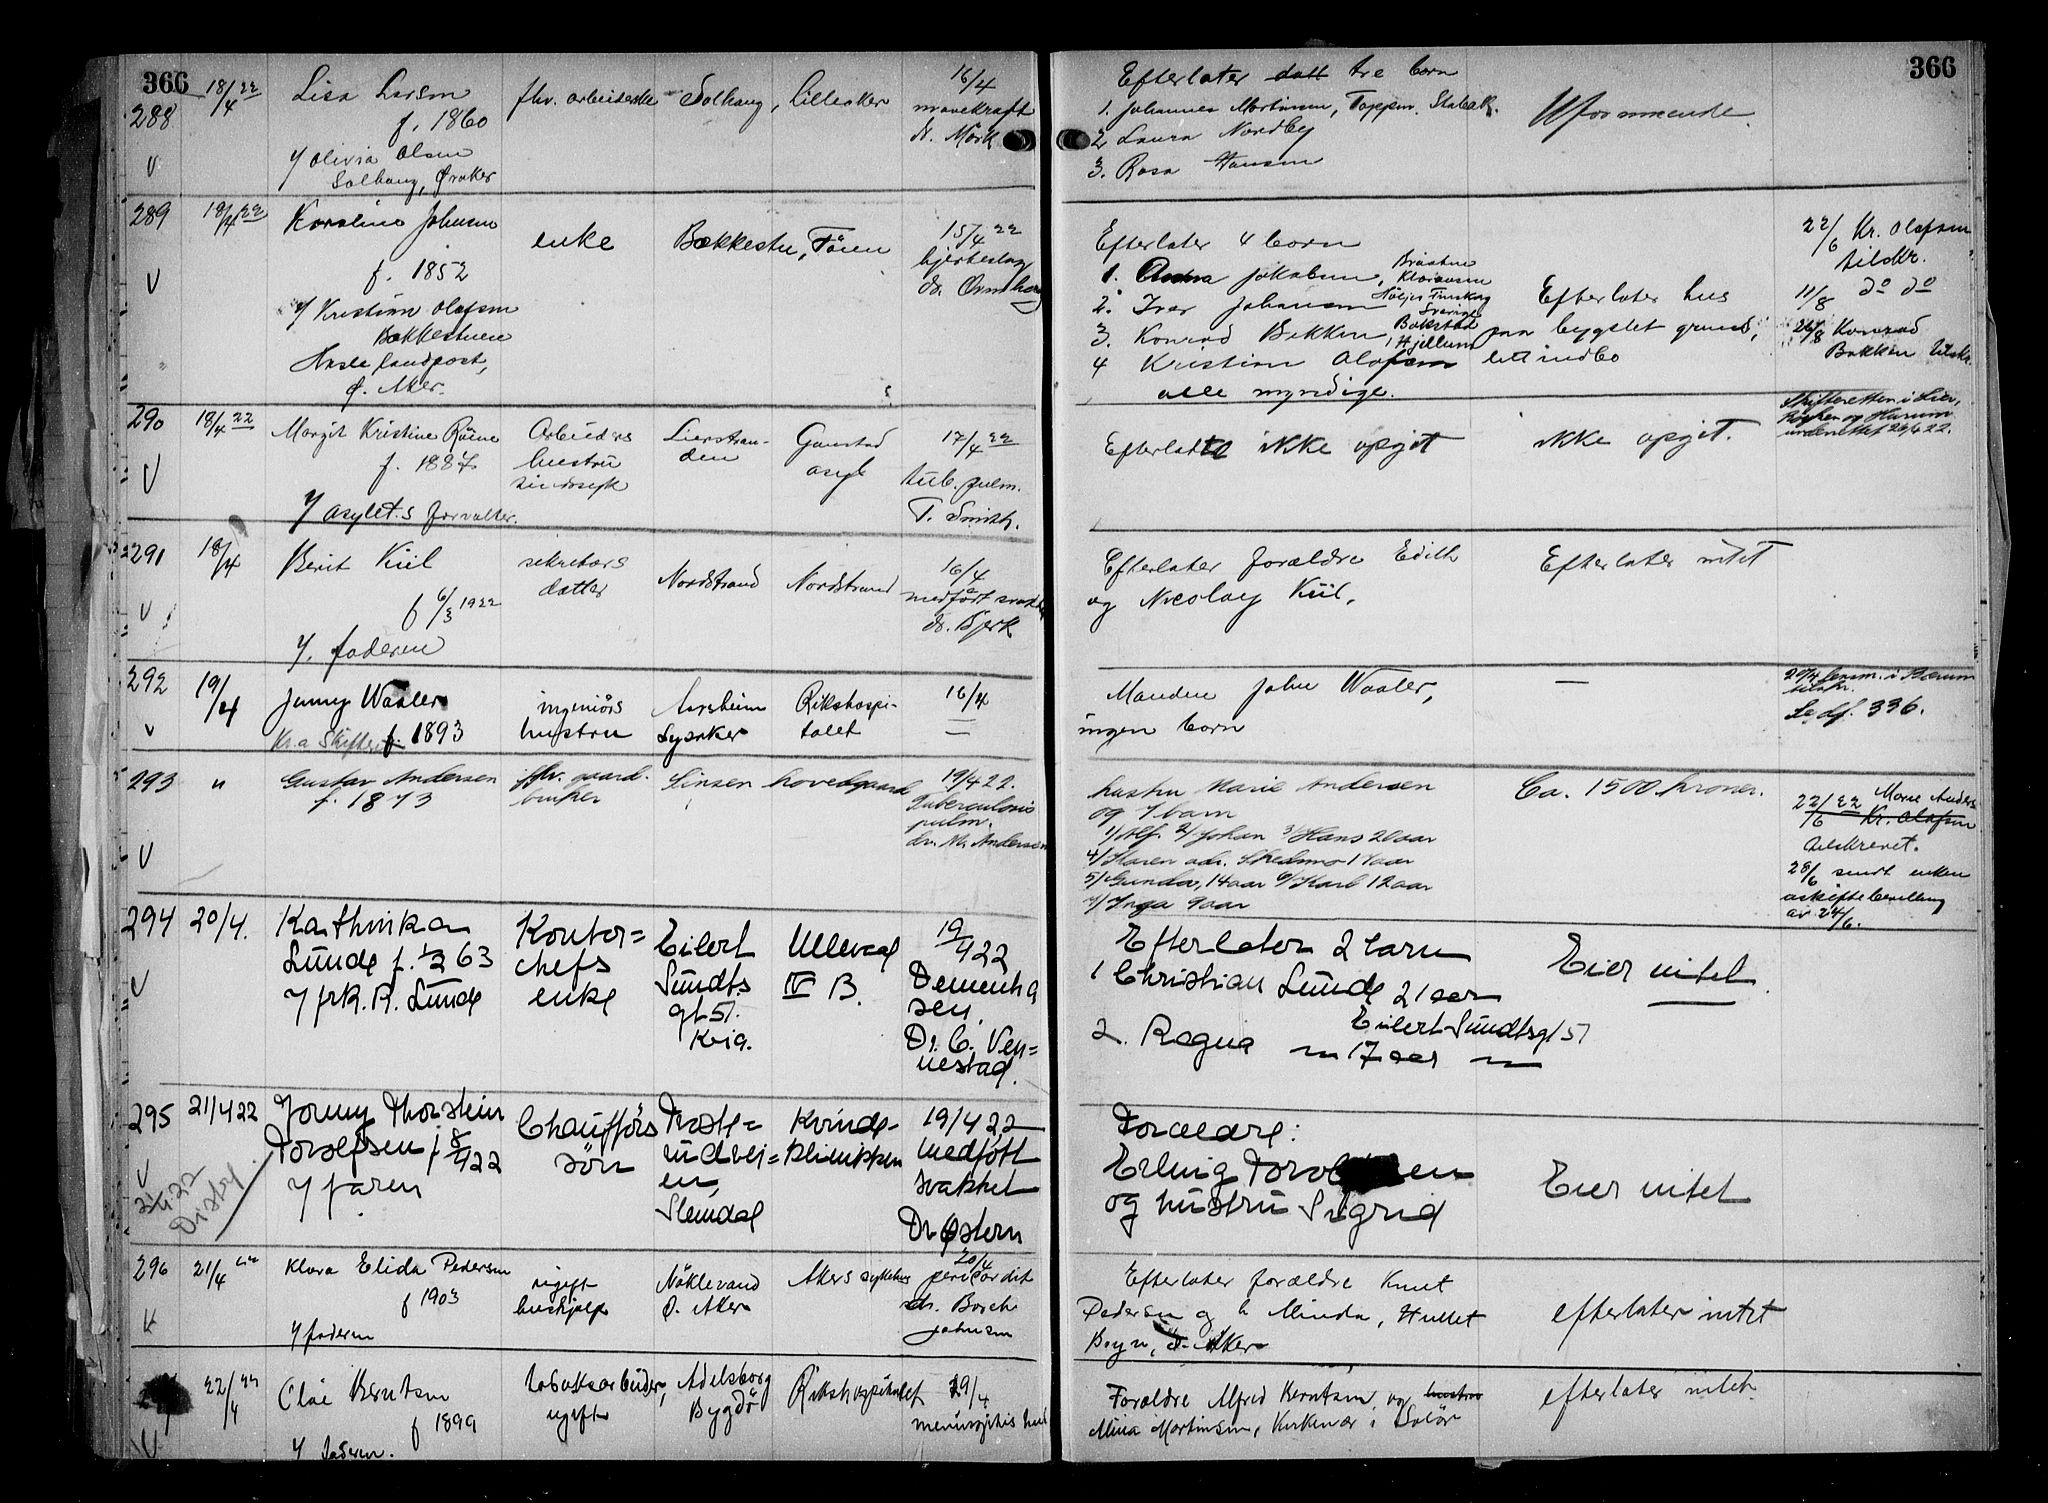 366
366
288
18/4 22
Lisa Larsen
f. 1860
Y Olivia Olsen
Solhaug,
fhv. arbeiderske
Solhaug, Lilleaker
16/4
mavekræft
dr. Mørk
Efterlater datt tre born
1. Johannes Mortinsen, Toppen. Stabæk.
2 Laura Nordby
3. Rosa Hansen
Uformuende.
289
18/4 22
Karoline Johnsen
f. 1852
Y Kristian Olafsen
Bækkestuen
Hasle landpost,
Ø. Aker.
enke
Bækkestu, Tøien
15/4 22
hjerteslag
dr.
Efterlater 4 born
1. Jakobsen,
2. Iver Johansen
3. Konrad Bekken
4 Kristian Olafsen
alle myndige.
Efterlater hus
paa bygslet grund,
litt indbo
22/6 Kr. Olafsen
tilskr.
11/8 do do
26/8 Konrad
Bakken tilskr.
290
18/4 22
Margit Kristine Röine
f. 1887.
Y asylet.s forvalter.
Arbeiders
hustru
sindssyk
Lierstran-
den
Gaustad
asyl
17/4 22
tub. pulm.
T. Smith.
Efterlatte ikke opgit
ikke opgit.
Skifteretten i Lier,
Røyken og Hurum
underrettet 26/4 22.
291
18/4
Berit Kiil
f 6/3 1922
Y. faderen
sekretærs
datter
Nordstrand
Nordstrand
16/4
medfödt svakhet
dr. Bjerk
Efterlater forældre Edith
og Nicolay Kiil.
Efterlater intet
292
19/4
Jenny Waaler
Kr.a Skifteret f. 1893
ingeniørs
hustru
Aarsheim
Lysaker
Rikshospi-
talet
16/4
—
Manden John Waaler,
ingen born
—
29/4 lensm. i Bærum
tilskr.
Se df. 336.
293
"
Gustav Andersen
f. 1873
fhv. gaard-
bruker
Sinsen hovedgaard
19/4 22.
Tuberculosis
pulm.
dr. N. Andersen
hustru Marie Andersen
og 7 barn
1/ Alf. 2/ Johan 3/ Hans 20 aar
4/ Karen adr. Skedsmo 17 aar
5/ Gunda, 14 aar 6/ Karl 12 aar
7/ Inga 9 aar
Ca. 1500 kroner.
22/6 22 Marie Anders
Kr. Olafsen
tilskrevet.
28/6 sendt enken
uskiftebevilling
av 24/6.
294
20/4.
Kathinka
Lunde f. 1/2 63
Y frk. R. Lunde
Kontor=
chefs
enke
Eilert
Sundts
gt 51.
Kria.
Ullevaal
IV B.
19/4 22
Dementia
sen.
Dr. C. Ven=
nestad.
Efterlater 2 barn
1 Christian Lunde 21 aar
Eilert Sundtsgt 51
2. Ragna — 17 aar —
Eier intet.
295
21/4 22
Jonny Thorstein
Torolfsen f. 8/4 22
Y faren
21/4 22
Distr.
Chauffårs
sön
Traste=
rudvei=
en,
Slemdal
Kvinde-
klinikken
19/4 22
medfött
svakhet
Dr Østern
Forældre:
Erling
og hustru Sigrid
Eier intet
296
21/4
Klara Elida Pedersen
f 1903
Y faderen
ugift
hushjelp
Nöklevand
Ø. Aker
Akers sykehus
20/4
pericardit
dr. Borch
Johnsen
Efterlater forældre Knut
Pedersen og h Minda, Hullet
Bryn, Ø. Aker
efterlater intet
22/4 22
Olai Berntsen
f 1899
Y faderen.
tobaksarbeider,
ugift
Adelsborg
Bygdö
Rikshospitalet
19/4
meningitis
Forældre Alfred Berntsen og hustru
Mina Martinsen, Kirkenær i Solör
efterlater intet